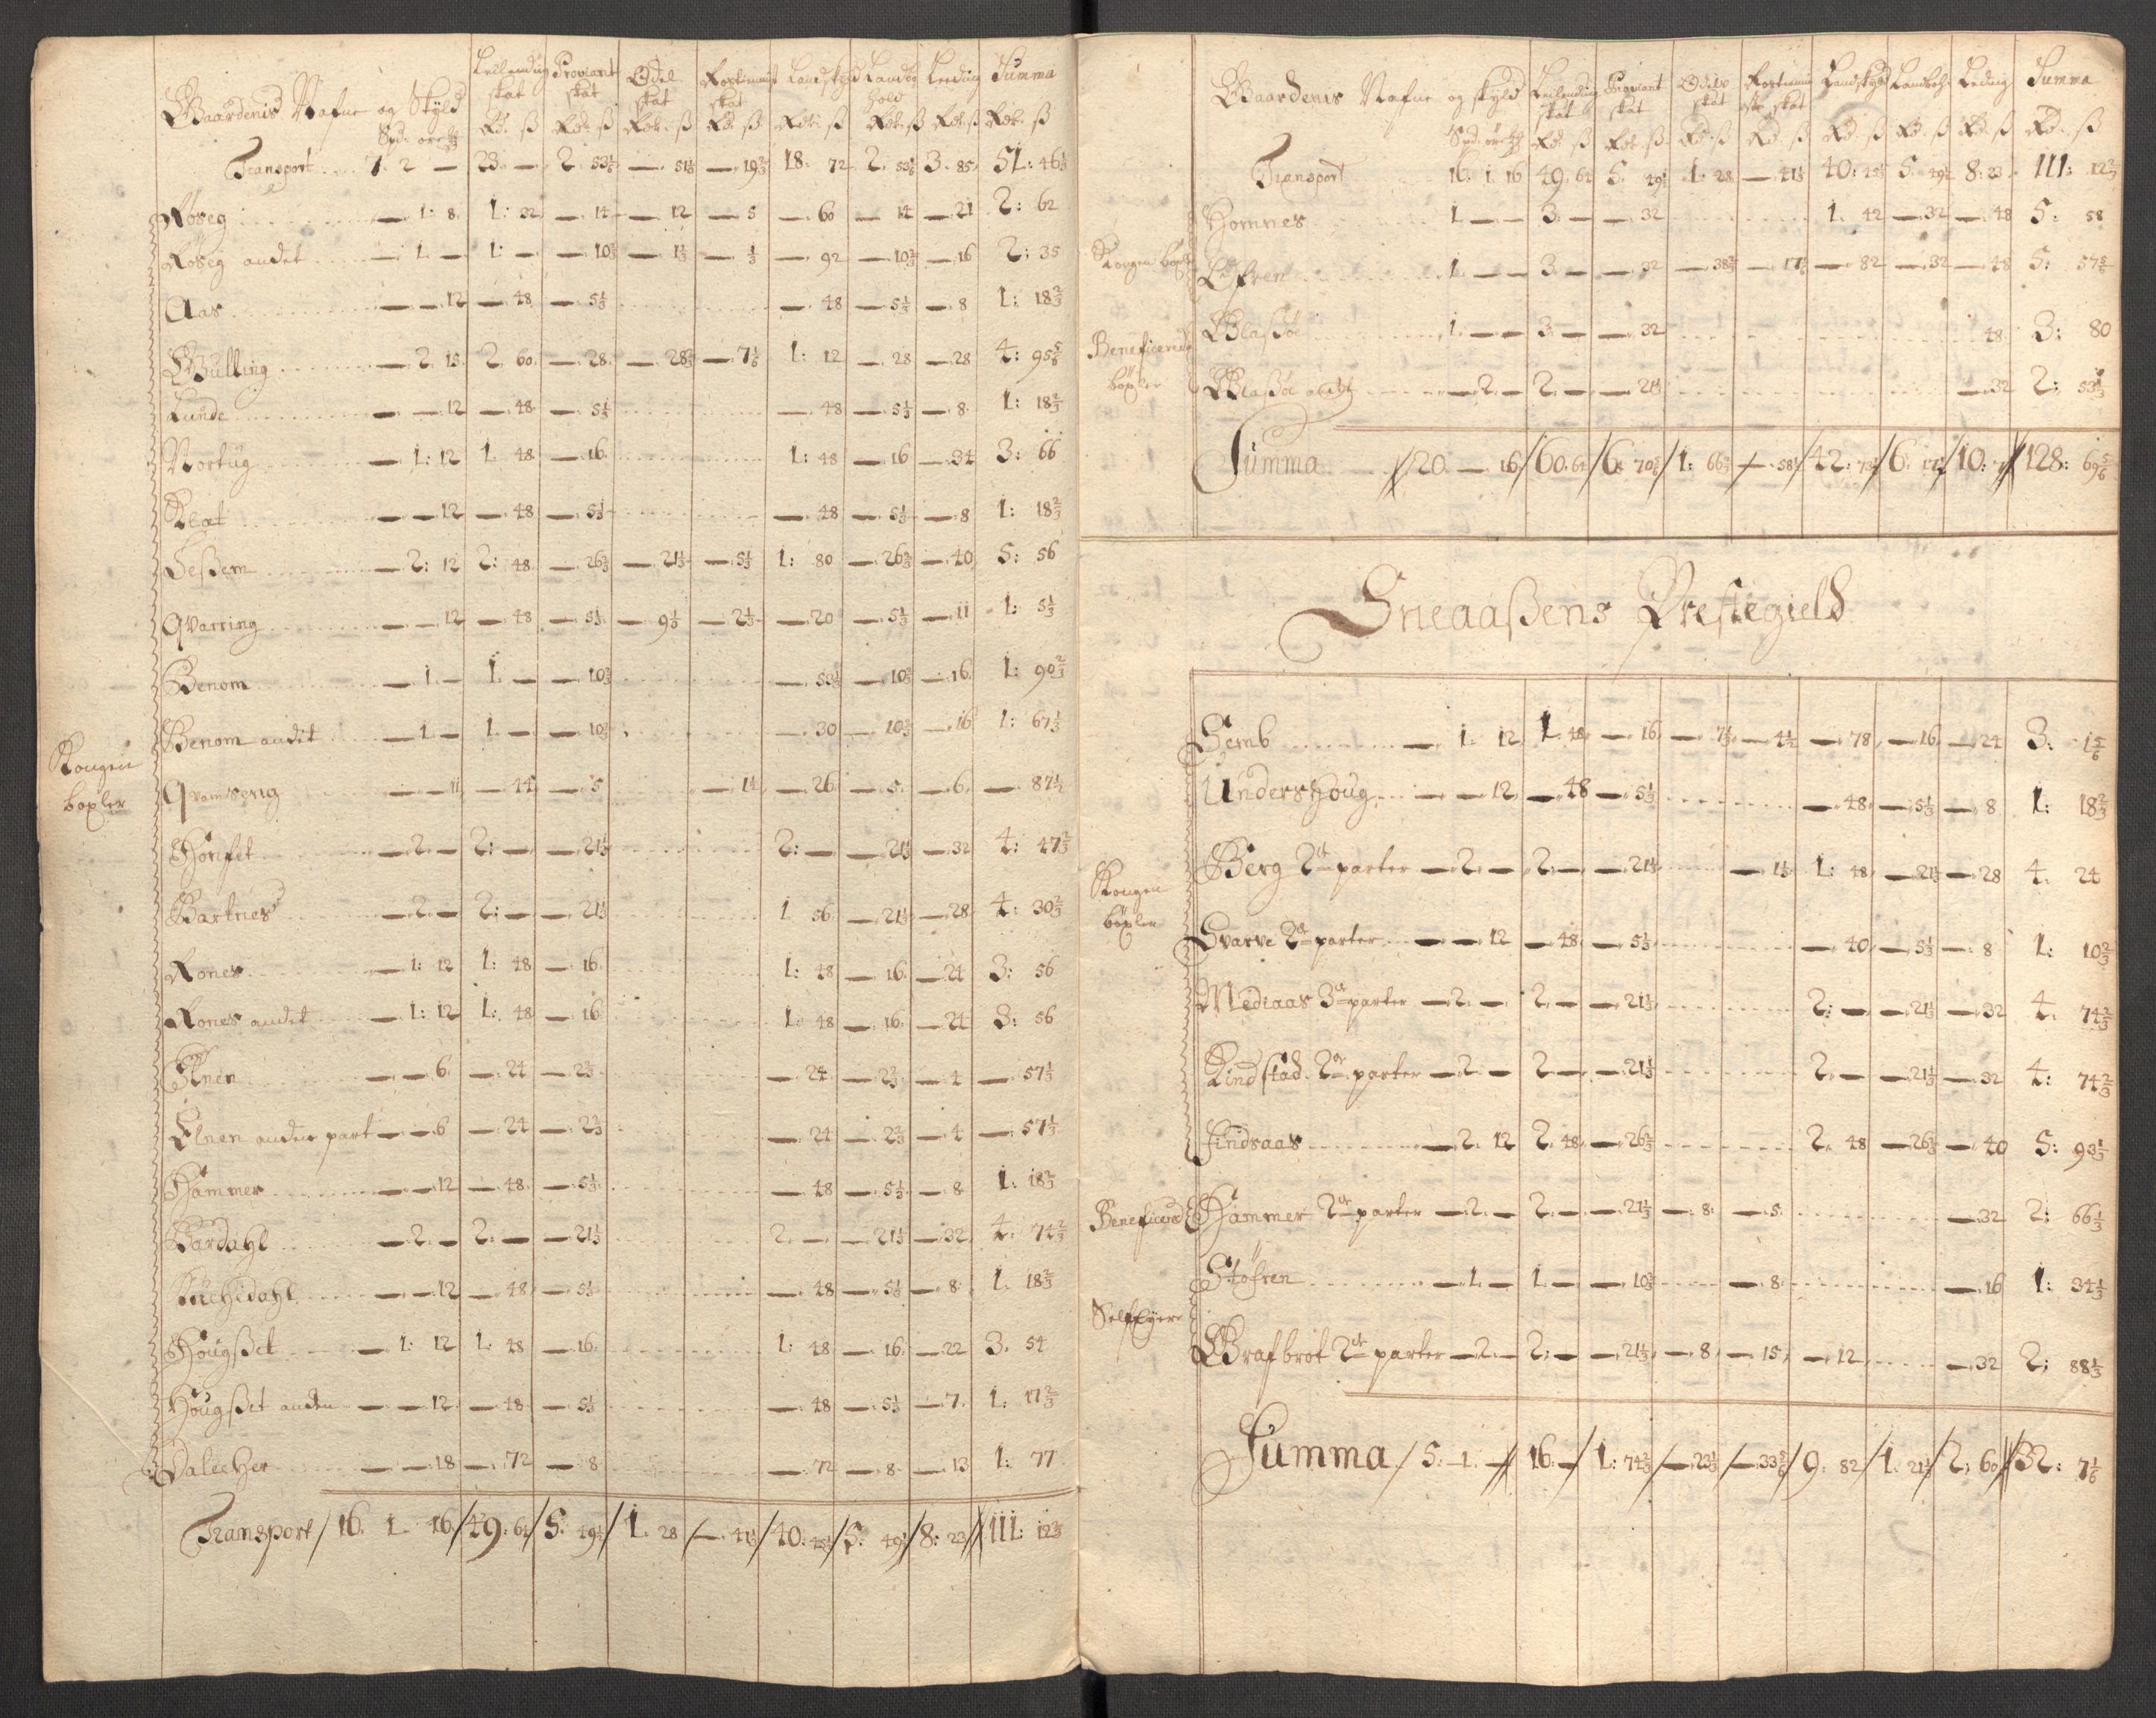 Gaardenis Nafne og Skyld Leilending skat Proviant skat Odel skat Rostieniste skat Landskyld Landbohold Leeding Summa
Spd. ore Rd. ß Rdr. ß Rdr. ß Rd. ß Rdr. ß Rdr. ß Rdr. ß Rdr. ß
Transport 7. 2 — 23. — 2. 53⅓ — 51⅓ — 19⅔ 18. 72 2. 53⅓ 3. 85 51: 46⅓
Røseg — 1: 8. 1: 32 — 14 — 12 — 5 — 60 — 14 — 21 2: 62
Røseg andet — 1 — 1: — — 10⅔ — 1⅓ — ⅓ — 92 — 10⅔ — 16 2: 35
Aas — — 12 — 48 — 5⅓ — 48 — 5⅓ — 8 1: 18⅔
Gulling — 2. 15. 2. 60. — 28. — 28⅔ — 7⅙ 1: 12 — 28 — 28 4: 95⅚
Lunde — — 12 — 48 — 5⅓ — 48 — 5⅓ — 8. 1: 18⅔
Nortug — 1: 12 1. 48 — 16. 1: 48 — 16 — 34 3: 66
Klat — — 12 — 48 — 5⅓ — 48 — 5⅓ — 8 1: 18⅔
Leßem — 2: 12 2: 48 — 26⅔ — 21⅓ — 5⅓ 1: 80 — 26⅔ — 40 5: 56
Qvarring — — 12 — 48 — 5⅓ — 9⅙ — 2⅓ — 20 — 5⅓ — 11 1: 5⅓
Benom — 1 — 1. — — 10⅔ — 53⅓ — 10⅔ — 16. 1: 90⅔
Benom andet — 1 — 1. — — 10⅔ — 30 — 10⅔ — 16 1: 67⅓
Kongen boxler
Qvamseng — — 11 — 44 — 5 — 1½ — 26 — 5. — 6. — 87½
Honset — 2 — 2: — — 21⅓ 2: — — 21⅓ — 32 4: 47⅔
Bartnes — 2 — 2: — — 21⅓ 1. 56 — 21⅓ — 28 4: 30⅔
Rones — 1: 12 1: 48 — 16. 1: 48 — 16. — 24 3: 56
Rones andet — 1: 12 1: 48 — 16 1: 48 — 16. — 24 3: 56
Elnen — — 6. — 24 — 2⅔ — 24 — 2⅔ — 4 — 57⅓
Elnen anden part — — 6 — 24 — 2⅔ — 24 — 2⅔ — 4 — 57⅓
Hammer — — 12 — 48. — 5⅓ — 48 — 5⅓ — 8 1: 18⅔
Bardahl — 2. — 2: — — 21⅓ 2. — — 21⅓ — 32 4: 74⅔
— — 12 — 48 — 5⅓ — 48 — 5⅓ — 8 1. 18⅔
Hougßet — 1: 12 1: 48 — 16. 1: 48 — 16. — 22 3. 54
Hougßet anden — — 12 — 48 — 5⅓ — 48 — 5⅓ — 7. 1: 17⅔
Dalecher — — 18 — 72 — 8 — 72 — 8 — 13 1: 77
Transport / 16. 1. 16 / 49. 64 / 5. 49⅓ / 1. 28 / — 41⅓ / 40: 45⅓ / 5: 49⅓ / 8: 23 // 111: 12⅔
Gaardenis Nafne og skyld Leilending skat Proviant skat Odels skat Rostieniste skat Landskyld Landboh. Leding Summa
Spd. ore Rd. ß Rdr. ß Rd. ß Rd. ß Rd. ß Rd. ß Rd. ß Rd. ß
Transport 16. 1. 16 49. 64 5. 49⅓ 1: 28 — 41⅓ 40: 45⅓ 5. 49⅓ 8: 23 111: 12⅔
Homnes 1 — — 3. — — 32 1. 42 — 32 — 48 5: 58
Kongen boxler
Øfren 1 — — 3 — — 32 — 38⅔ — 17⅙ — 82 — 32 — 48 5: 57⅚
Beneficerede boxler
Glaßøe 1. — — 3. — — 32 48 3: 80
Glaßøe andet — 2 — 2. — — 21⅓ — 32 2: 53⅓
Summa // 20. — 16 / 60. 64 / 6. 70⅚ / 1: 66⅔ / — 58½ / 42: 73⅓ / 6. 17½ / 10: 7 // 128: 69⅚
Sneaaßens Prestegield
Semb — 1. 12 1. 48 — 16 — 7⅓ — 4½ — 78 — 16 — 24 3. 1⅚
Undershoug — — 12 — 48 — 5⅓ — 48 — 5⅓ — 8 1: 18⅔
Kongen boxler
Berg 2de parter — 2. — 2. — — 21⅓ — 1⅓ 1: 48 — 21⅓ — 28 4. 24
Svarve 2de parter — — 12 — 48 — 5⅓ — 40 — 5⅓ — 8 1: 10⅔
Mediaas 3de parter — 2. — 2. — — 21⅓ 2: — — 21⅓ — 32 4. 74⅔
Kindstad 2de parter — 2. — 2. — — 21⅓ 2. — — 21⅓ — 32 4: 74⅔
Findsaas — 2. 12 2. 48 — 26⅔ 2. 48 — 26⅔ — 40 5: 93⅓
Beneficered
Hammer 2de parter — 2. — 2. — — 21⅓ — 8. — 5. — 32 2: 66⅓
Støfren — 1. — 1. — — 10⅔ — 8 — 16 1: 34⅓
SelfEyer
Grafbrot 2de parter — 2. — 2: — — 21⅓ — 8 — 15 — 12 — 32 2: 88⅓
Summa / 5. 1. — // 16. — / 1: 74⅔ / — 23⅓ / — 33⅚ / 9. 82 / 1. 21⅓ / 2: 60 // 32: 7⅙